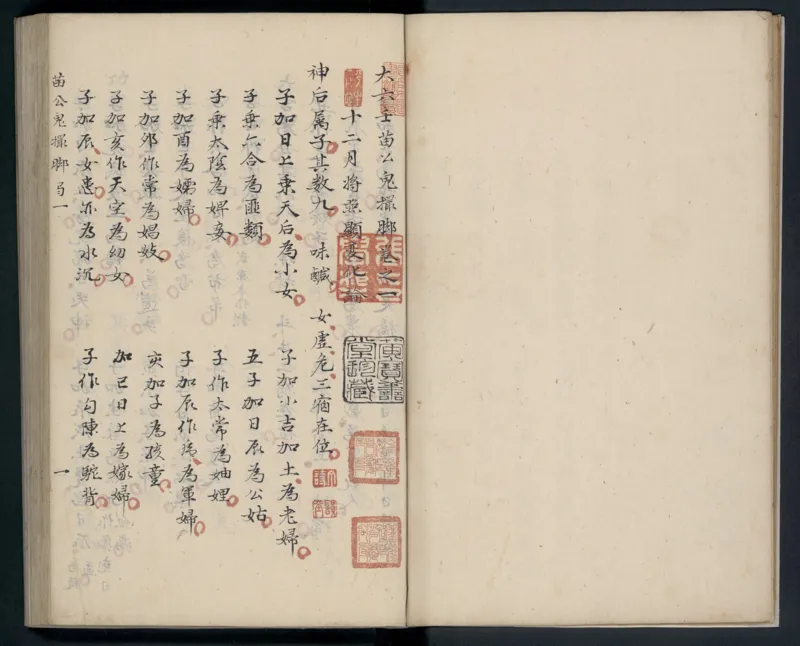 大六壬苗公鬼撮脚卷之一
十二月將顯變化論
神后属子其数九 味鹹 女虛危三宿在位
子加日上乘天后為小女 子加小吉加土為老婦
子乘六合為匪類 五子加日辰為公姑
子乘太陰為婢妾 子作太常為妯娌
子加酉為孀婦 子加辰作為軍婦
子加邜作常為娼妓 亥加子為孩童
子加亥作天空為幼女 加巳日上為嫁婦
子加辰女患亦為水沉 子作勾陳為駝背
苗公鬼撮脚 一 一
堂珍藏